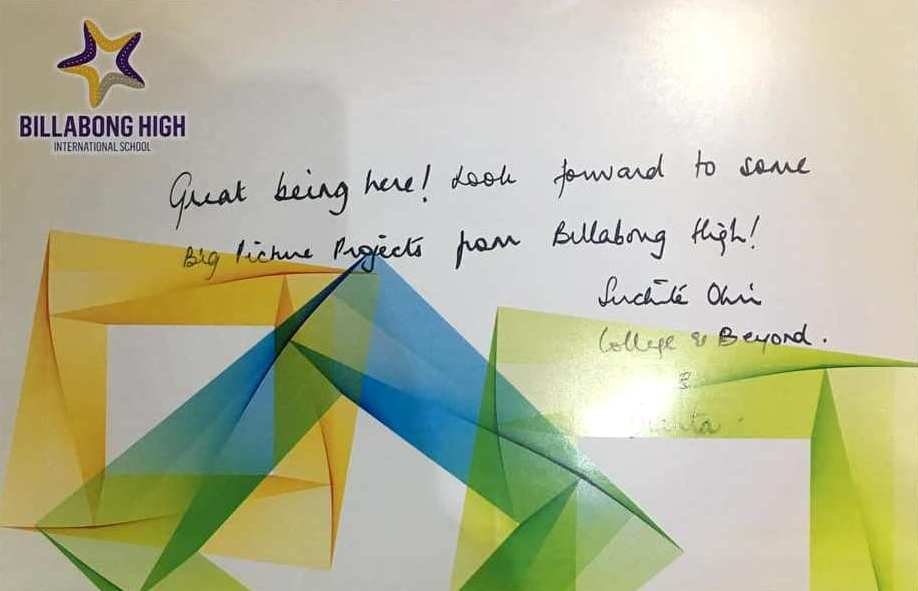 BILLABONG HIGH
INTERNATIONAL SCHOOL
Great being here! Look forward to some
Big Picture Projects from Billabong High!
College & Beyond.